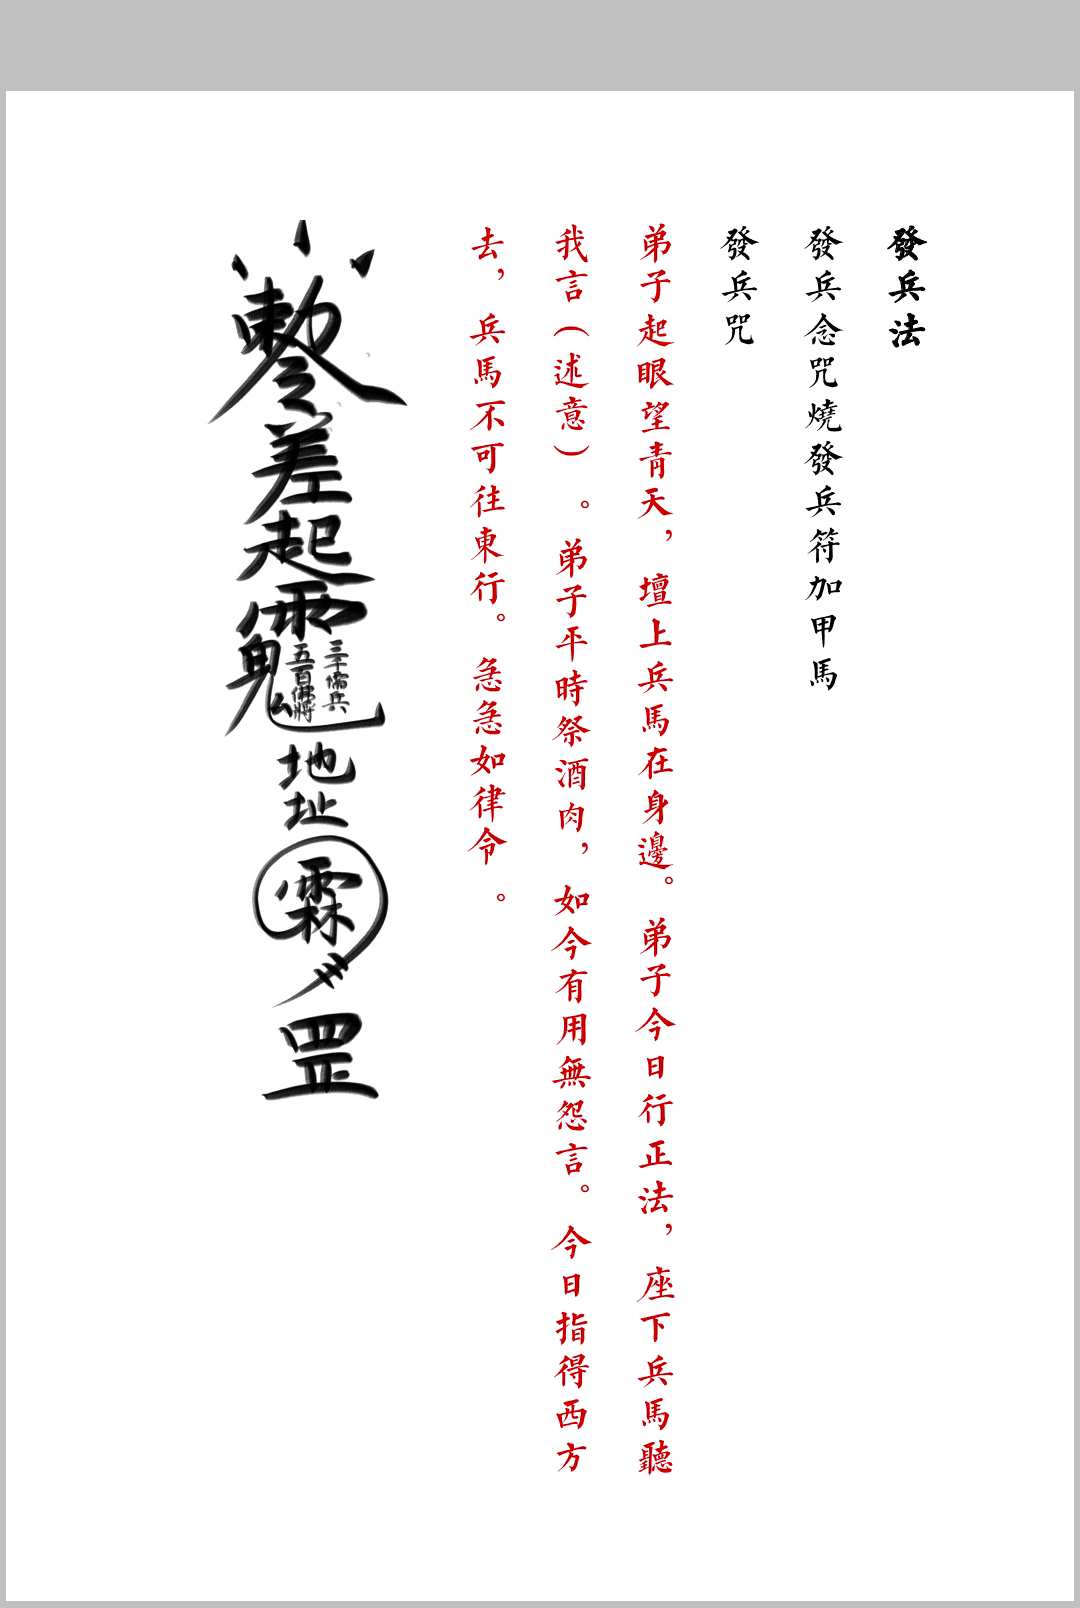 發兵法
發兵念咒燒發兵符加甲馬
發兵咒
弟子起眼望青天，壇上兵馬在身邊。弟子今日行正法，座下兵馬聽
我言（述意）。弟子平時祭酒肉，如今有用無怨言。今日指得西方
去，兵馬不可往東行。急急如律令。
差起
三千儒兵
五百佛將
地址
霖
罡